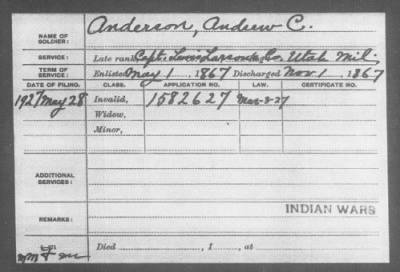 NAME OF SOLDIER: Anderson, Andrew C.
SERVICE: Late rank Capt. Co. Utah Mil.
TERM OF SERVICE: Enlisted May 1, 1867 Discharged Nov. 1, 1867
DATE OF FILING. CLASS. APPLICATION NO. LAW. CERTIFICATE NO.
1927 May 28 Invalid, 1582627 Mar-3-27
Widow,
Minor,
ADDITIONAL SERVICES:
INDIAN WARS
REMARKS:
Died , 1 , at